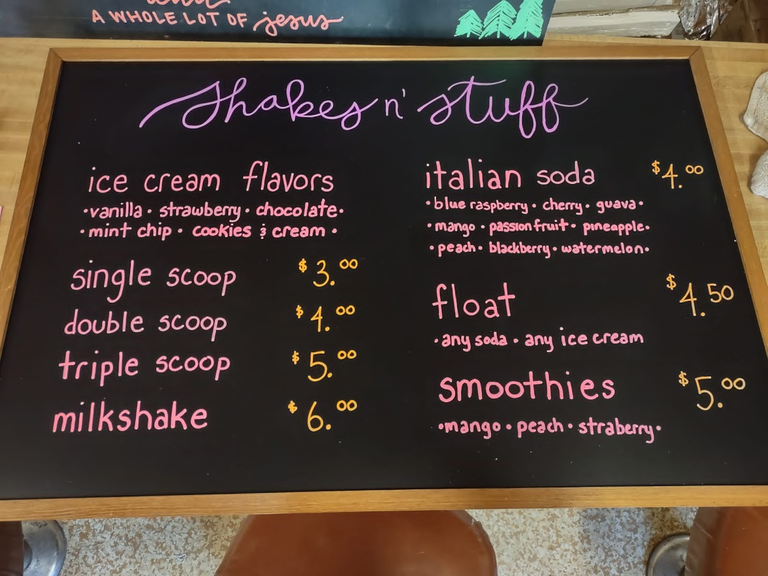 A WHOLE LOT OF jesus
Shakes n' Stuff
ice cream flavors
•vanilla • strawberry • chocolate•
•mint chip • cookies & cream •
single scoop $3.00
double scoop $4.00
triple scoop $5.00
milkshake $6.00
italian soda $4.00
•blue raspberry • cherry • guava•
•mango • passionfruit • pineapple•
•peach • blackberry • watermelon•
float $4.50
•any soda • any ice cream
smoothies $5.00
•mango • peach • straberry•